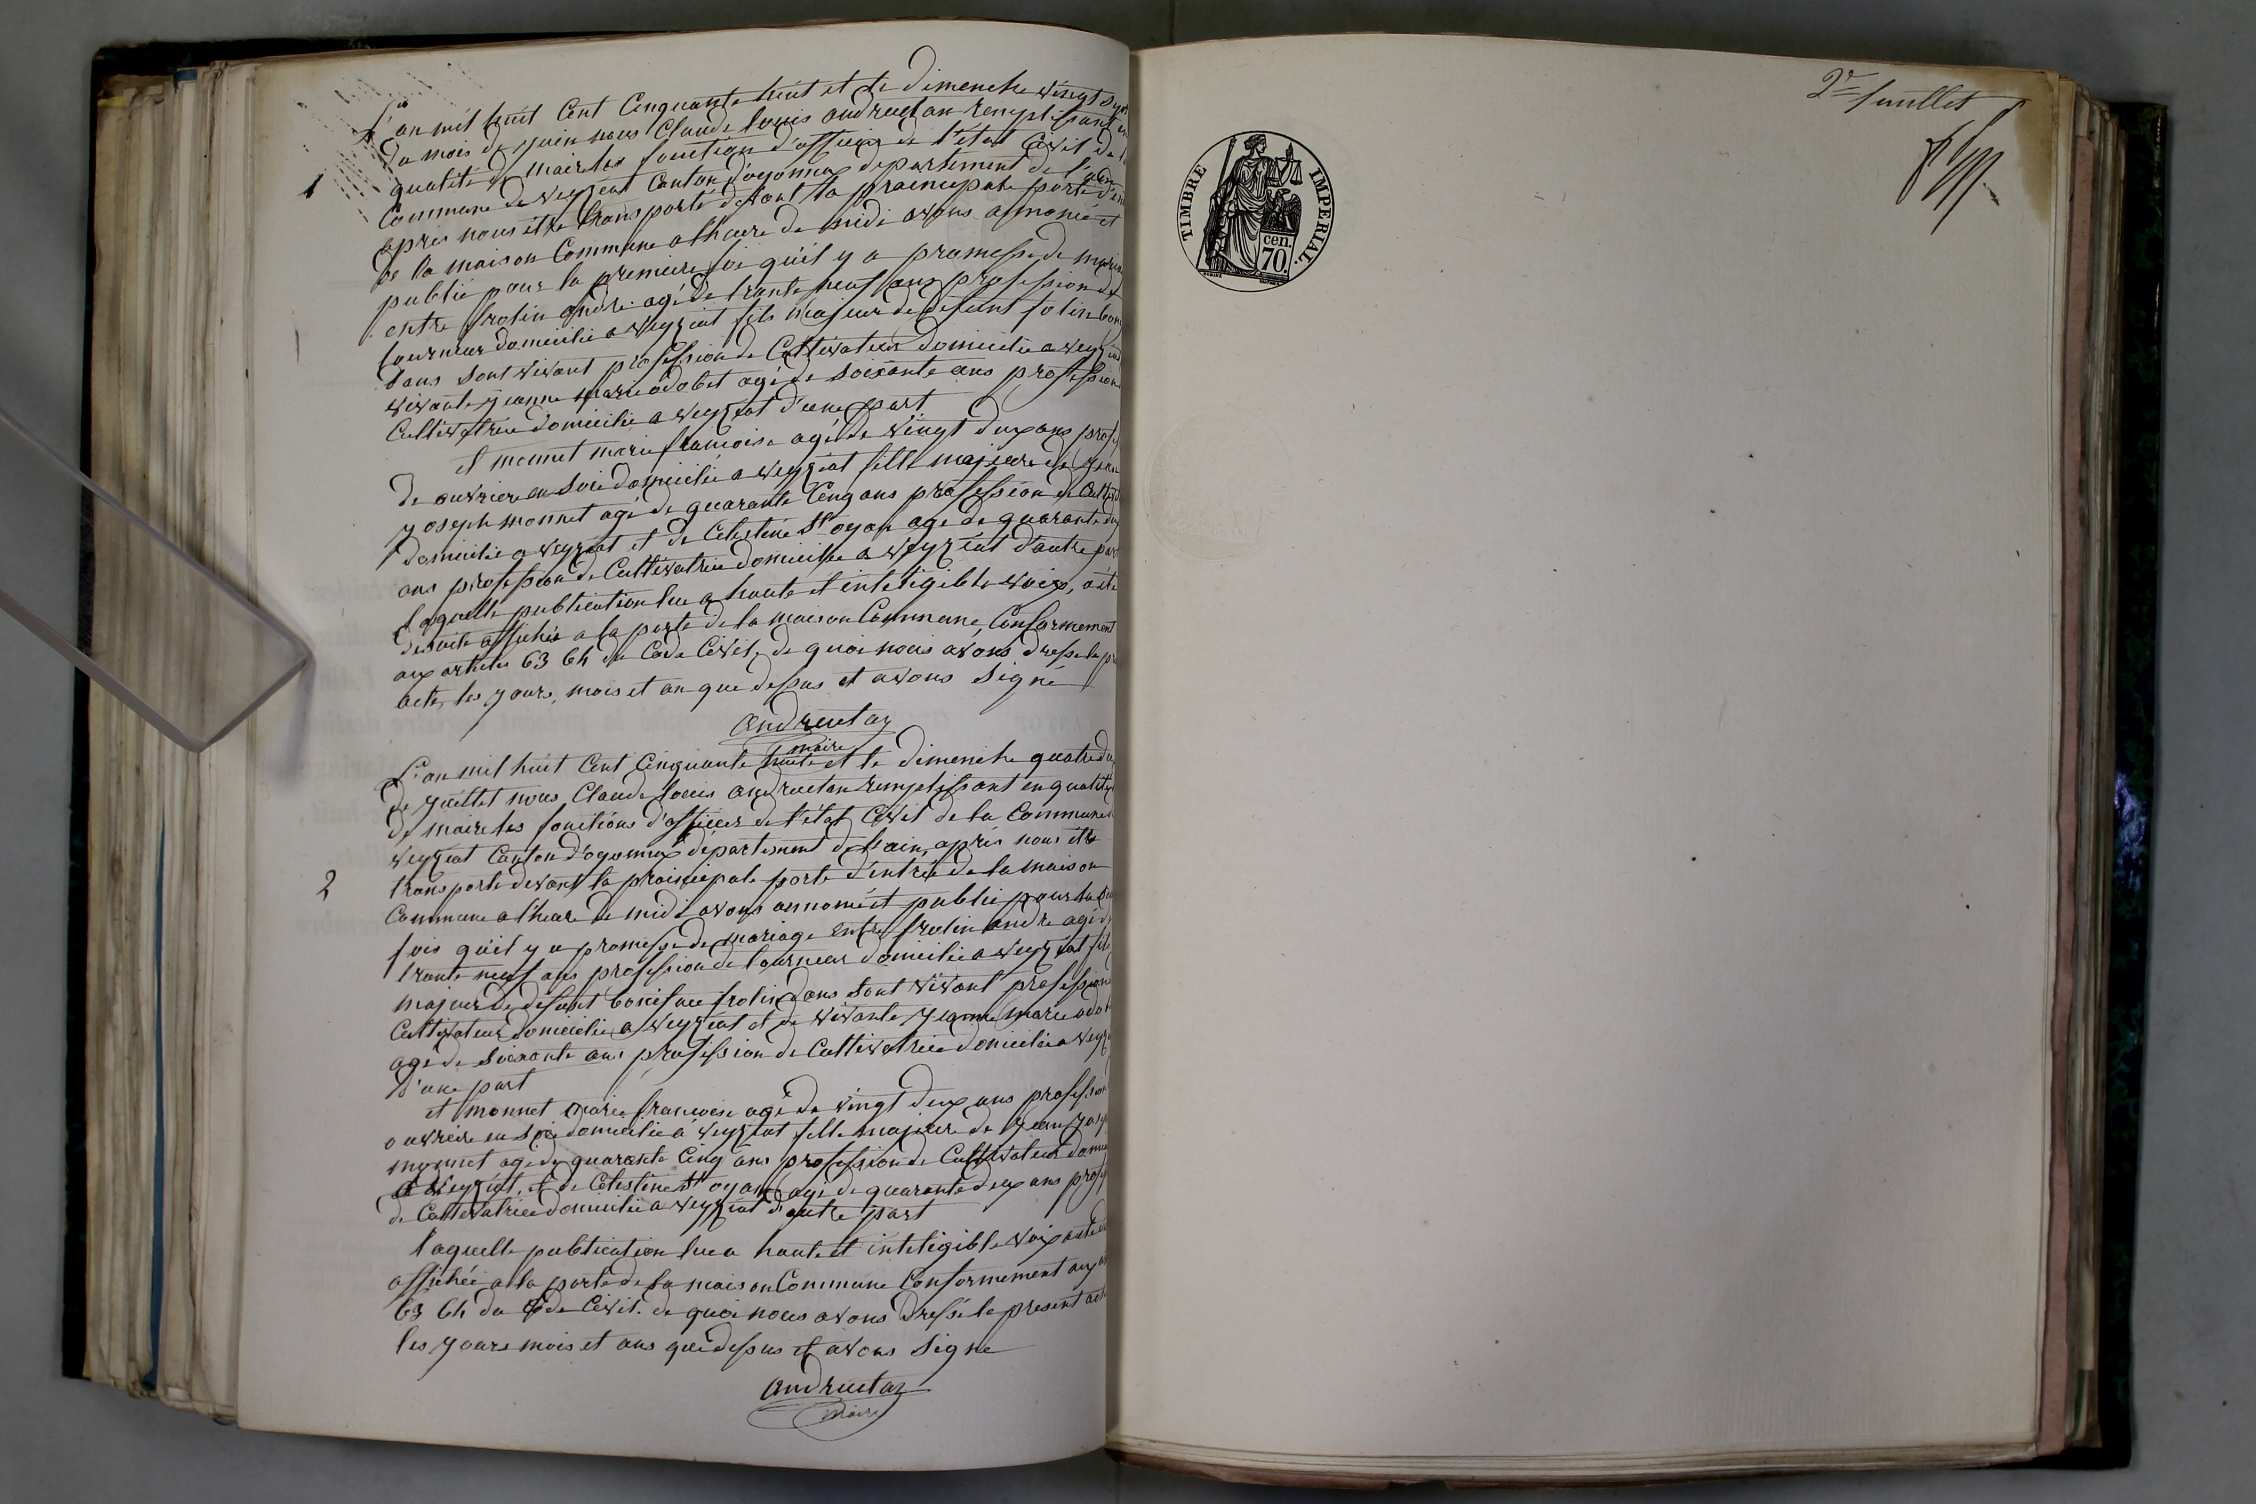 1
L'an mil huit Cent Cinquante huit et le dimenche vingt sept
du mois de juin nous Claude louis andruetan remplissant en
qualité de maire les fonctions d'officier de l'état Civil de la
Commune de veyziat Canton d'oyonnax departement de l'ain
apres nous être transporté devant la prainciepale porte d'en
de la maison Commune a l'heure de midi avons annoncé et
publié pour la premiere fois qu'il y a promesse de mariage
entre frolin andre agé de trante neuf ans profession de
tourneur domicilié a veyziat fils majeur de defunt folin boni
dans sont vivant profession de Cultivateur domicilié a veyziat
vivante yeanne marie odobet agé de soixante ans profession
Cultivatrice domicilié a veyziat d'une part
et monnet marie francoise agé de vingt deux ans profes
de ouvriere en soie domicilié a veyziat fille majeure de yean
yoseph monnet agé de quarante Cinq ans profession de Cultiv
domicilié a veyziat et de Celestine St oyan agé de quarante deux
ans profession de Cultivatrice domicilié a veyziat d'autre part
laquelle publication lue a haute et inteligible voix, a été
de suite affichée a la porte de la maison Commune, Conformement
aux articles 63 64 du Code Civil, de quoi nous avons dressé le pr
acte, les yours, mois et an que dessus et avons signé
andruetan
maire
2
L'an mil huit Cent Cinquante huit et le dimenche quatre du
de yuillet nous Claude louis andruetan remplissant en qualité
de maire les fonctions d'officier de l'état Civil de la Commune
veyziat Canton d'oyonnax departement de l'ain, après nous être
transporté devant la prainciepale porte d'entrée de la maison
Commune a l'heure de midi avons annoncé et publié pour la
fois qu'il y a promesse de mariage entre frolin andre agé d
trante neuf ans profession de tourneur domicilié a veyziat fils
majeur de defunt boniface frolin dans sont vivant profession
Cultivateur domicilié a veyziat et de vivante yeanne marie odob
agé de soixante ans profession de Cultivatrice domicilié a veyzi
d'une part
et monnet marie francoise agé de vingt deux ans profession
ouvriere en soie domicilié a veyziat fille majeure de yean yosep
monnet agé de quarante Cinq ans profession de Cultivateur domic
a veyziat, et de Celestine St oyan agé de quarante deux ans profes
de Cultivatrice domicilié a veyziat d'autre part
laquelle publication lue a haute et inteligible voix a été de
affichée a la porte de la maison Commune Conformement aux ar
63 64 du Code Civil. de quoi nous avons dressé le present acte
les yours mois et ans que dessus et avons signé
andruetan
maire
2e feuillet
TIMBRE IMPERIAL
cen.
70.